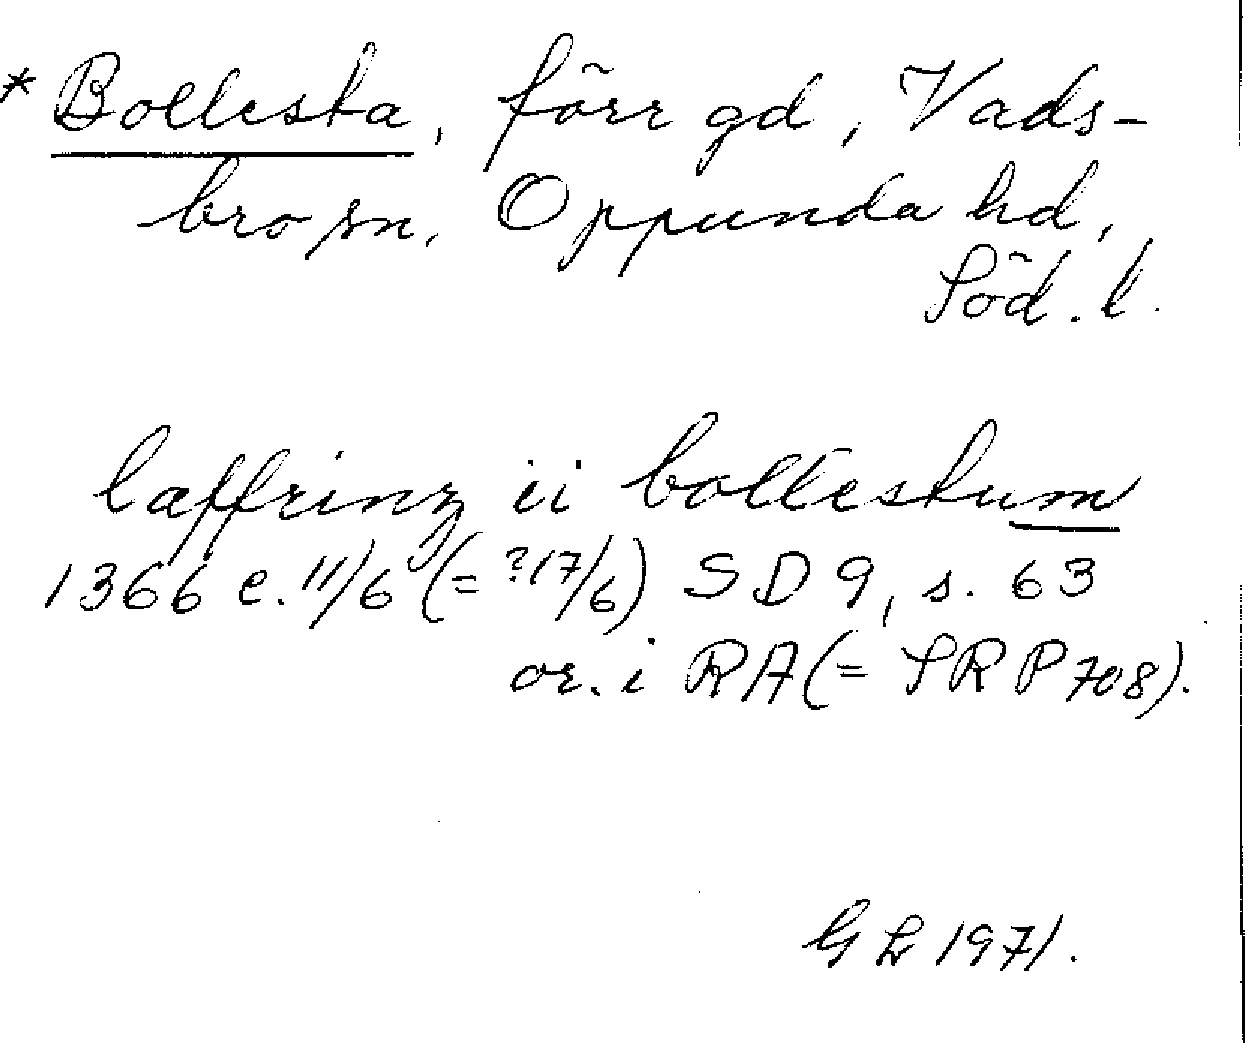 * Bollesta, förr gd, Vads-
bro sn, Oppunda hd,
Söd. l.
laffrinz ii bollestum
1366 e. 11/6 (= ?17/6) SD 9, s. 63
or. i RA (= SRP 708).
GL 1971.